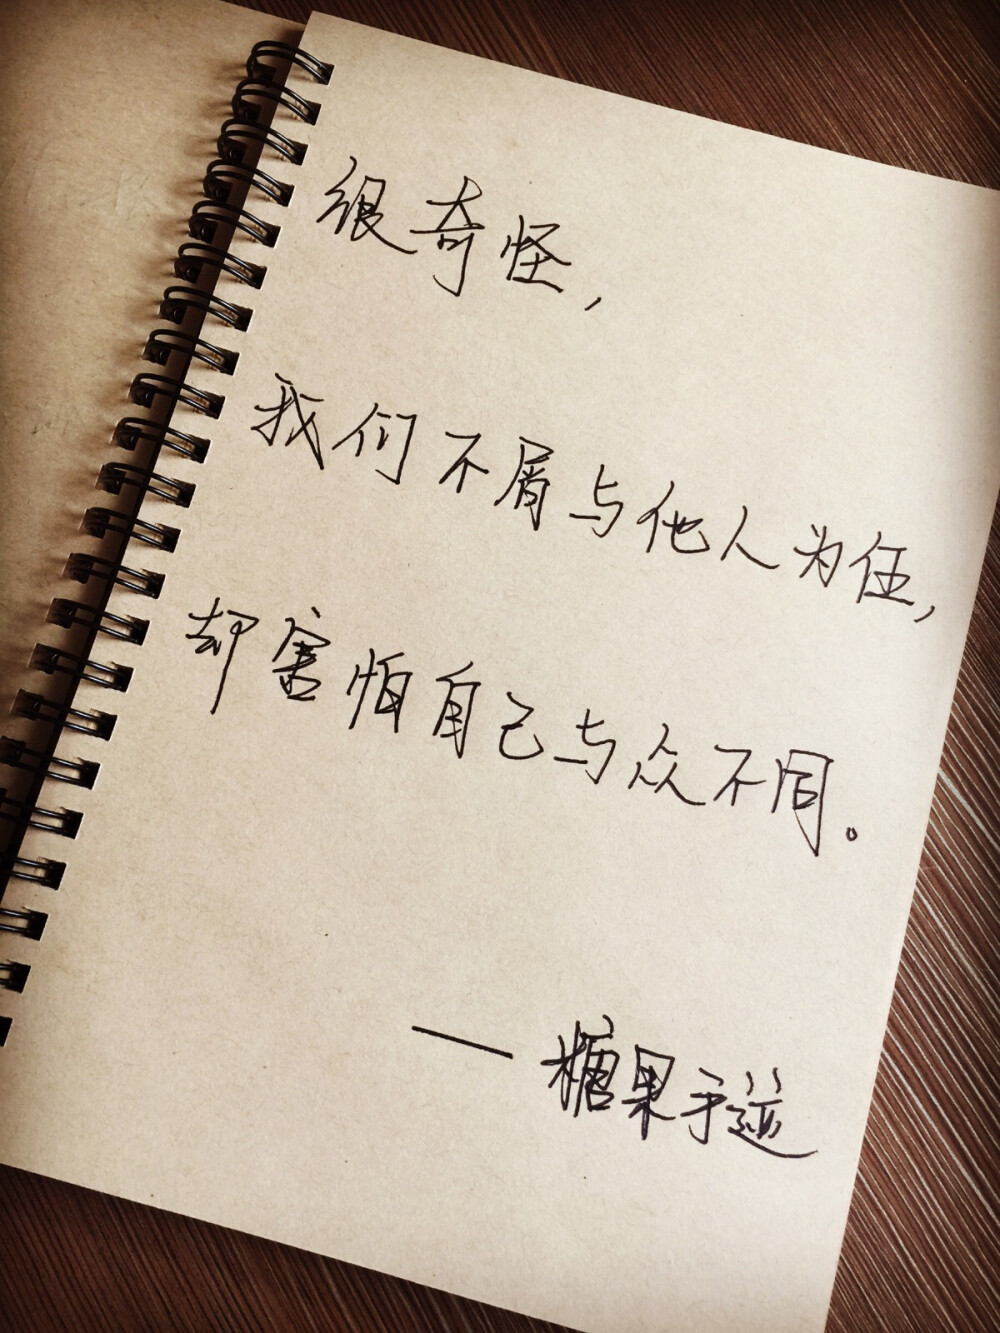 很奇怪,
我们不屑与他人为伍,
却害怕自己与众不同。
——糖果手迹